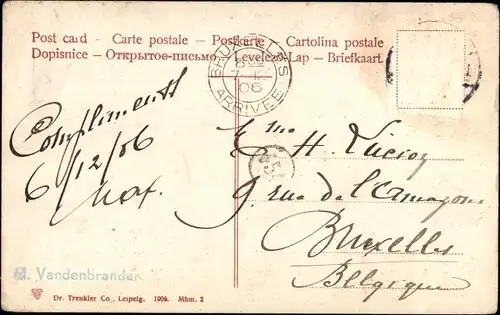 Post card - Carte postale - Postkarte - Cartolina postale
Dopisnice - Открытое-письмо - Levelező-Lap - Briefkaart
BRUXELLES
7
06
ARRIVEE
Compliments
6/12/06
Max.
H.
9 rue de l'
Bruxelles
Belgique
M. Vandenbranden
Dr. Trenkler Co., Leipzig. 1906. Mhm. 2